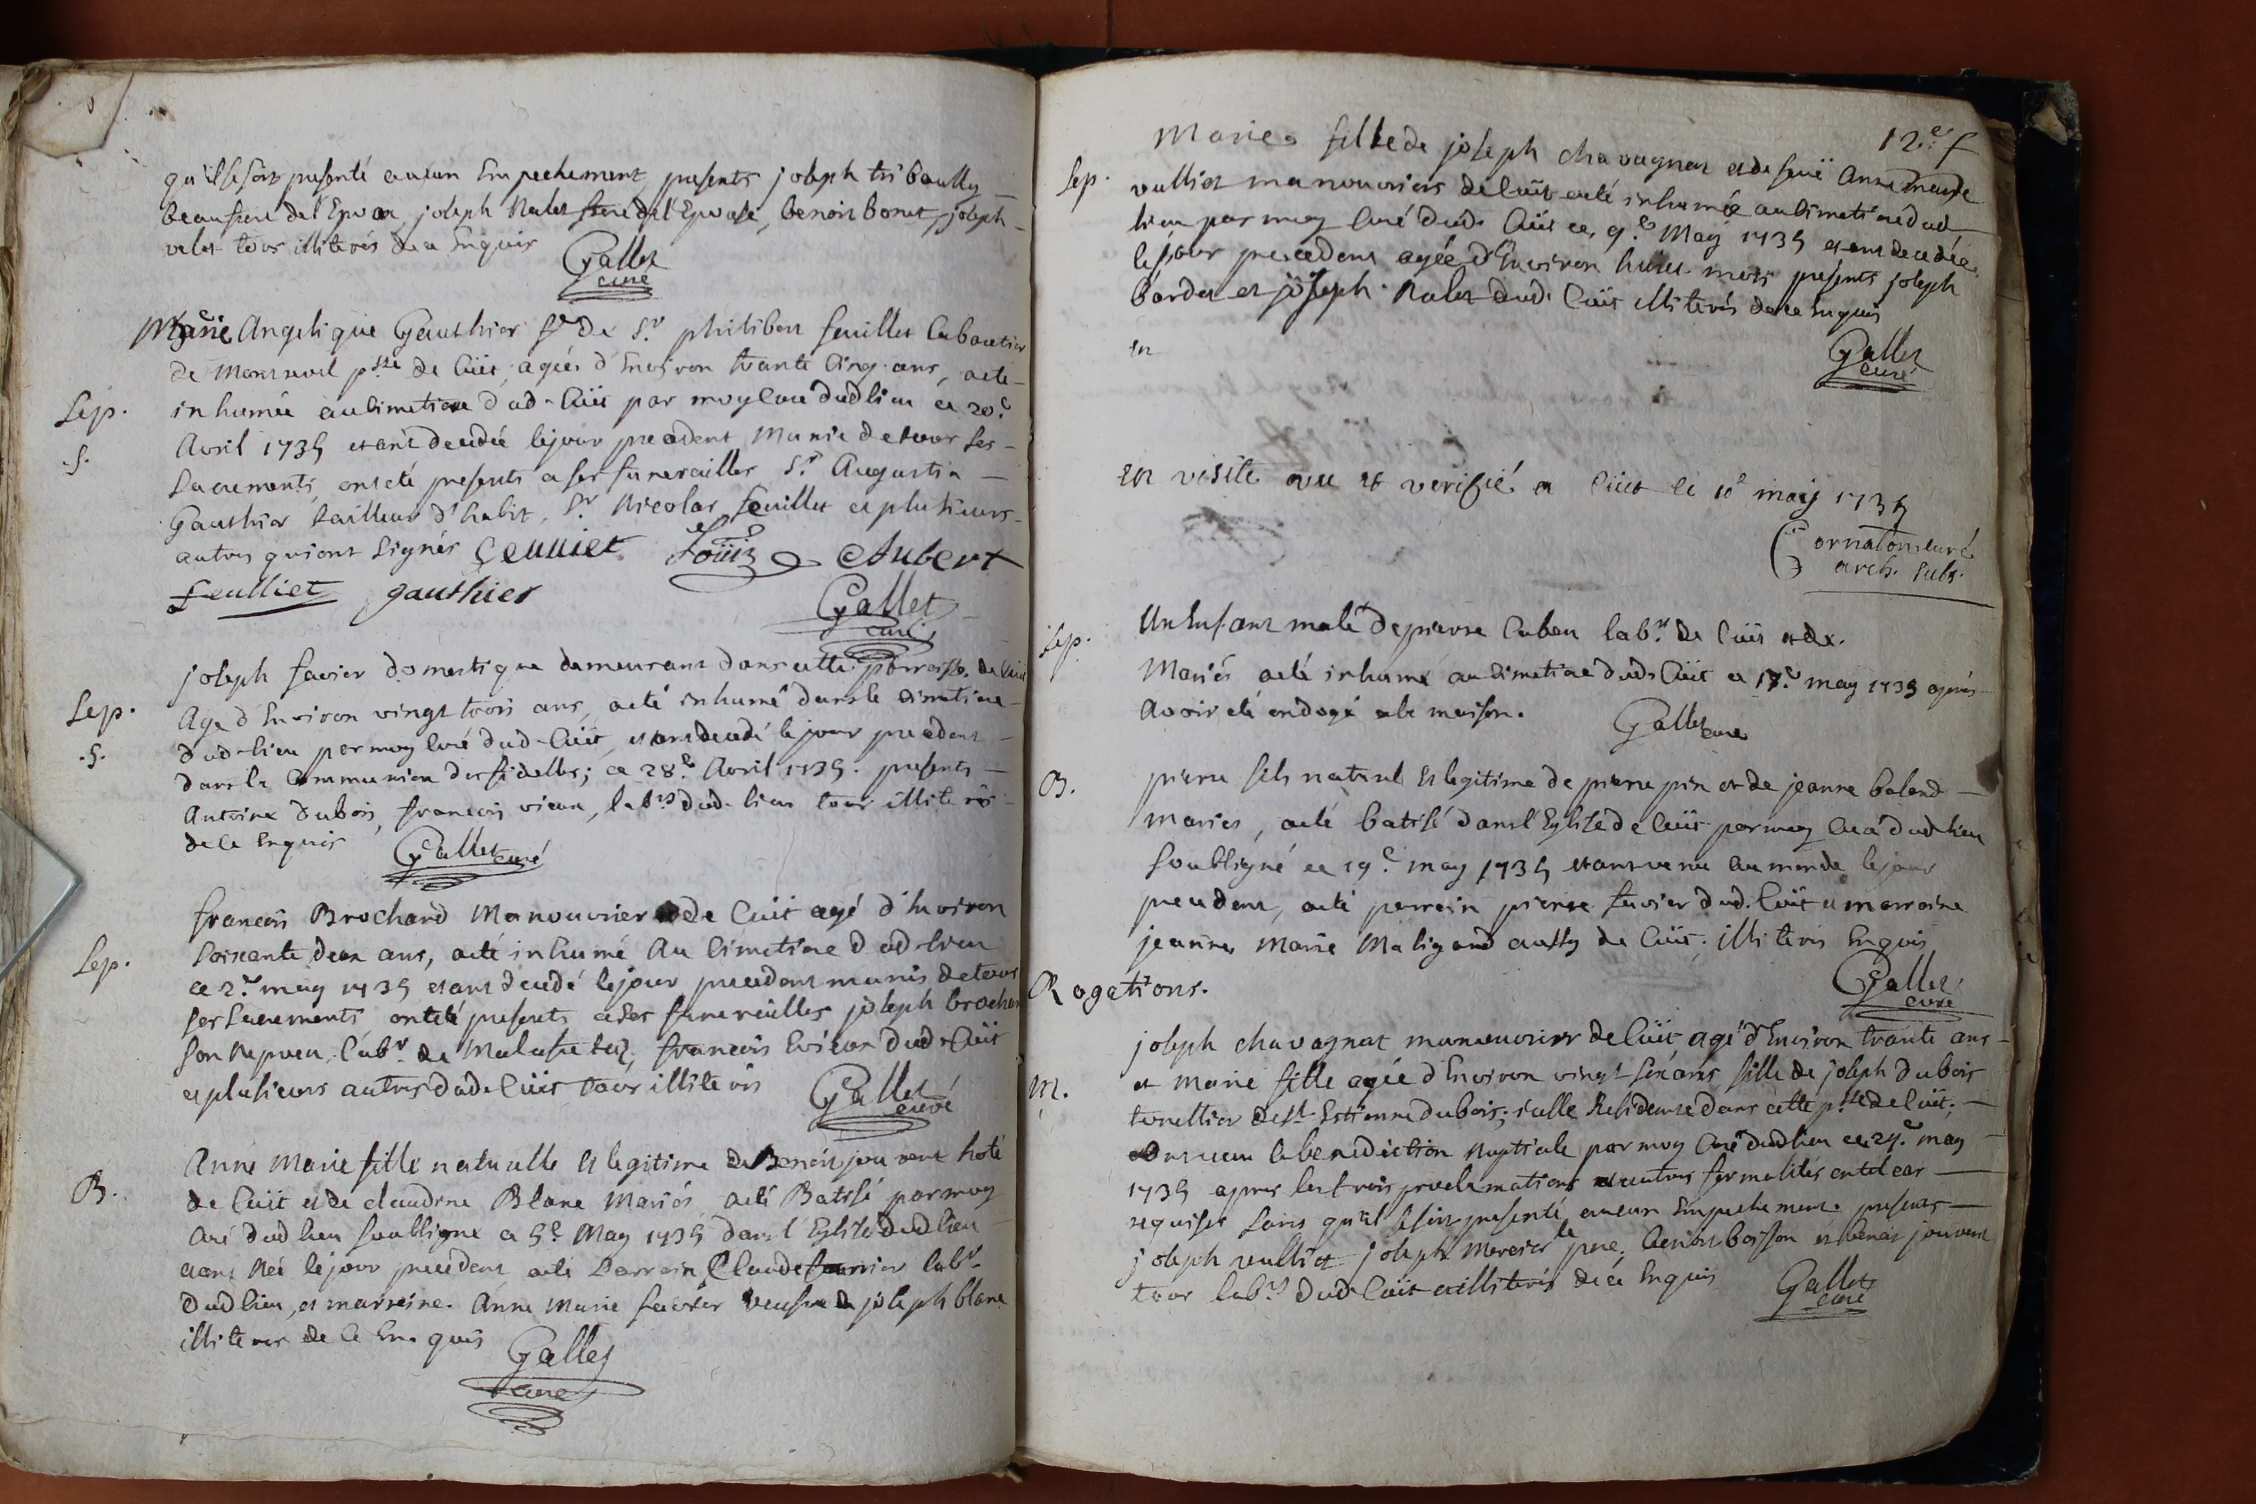 qu'il se soit presenté aucun Empechement, presents joseph triboulley
beaufrere de l'Epoux, joseph Nalet frere de l'Epouse, benoit bonet, joseph
valet tous illiterés de ce Enquis
Gallet
curé
Marie Angelique Gauthier fe de Sr. philibert feuillet Cabaretier
de Montrevel psse de Cuet, agée d'Environ trante Cinq ans, a eté
Sep. inhumée au Cimetiere dud. Cuet par moy Curé dud lieu ce 20e.
.S. Avril 1735 etant decedée le jour precedent Munie de tous ses
Sacrements, ont eté presents a ses funerailles Sr. Augustin
Gauthier tailleur d'habit, Sr. Nicolas feuillet et plusieurs
autres qui ont Signés feuillet Aubert
feulliet gauthier
Gallet
curé
joseph favier domestique demeurant dans cette parroisse de Cuet
Sep. Age d'Environ vingt trois ans, a eté inhumé dans le Cimetiere
.S. dud-lieu par moy Curé dud-Cuet, etant decedé le jour precedent
dans la Communion des fidelles; ce 28e. Avril 1735. presents
Antoine Dubois, francois vieux, labrs dud. lieu tous illiterés
de ce Enquis Gallet curé
francois Brochard Manouvrier de Cuet agé d'Environ
Sep. Soixante deux ans, a eté inhumé Au Cimetiere dud-lieu
ce 2e. may 1735 etant decedé le jour precedent munis de tous
ses Sacrements, ont eté presents a ses funerailles joseph brochard
son Nepveu, labr. de Malafretaz, francois dud-Cuet
et plusieurs autres dud. Cuet tous illiterés Gallet
curé
Anne Marie fille naturelle et legitime de Benoit jouvent hote
B. de Cuet et de claudine Blanc Mariés, a eté Batisé par moy
Curé dud lieu soubsigné ce 5e. May 1735 dans l'Eglise dud lieu
etant Née le jour precedent, a eté Parrain Claude labr.
dud lieu, et marreine. Anne Marie favier veufve de joseph blanc
illiteres de ce Enquis
Gallet
curé
12e. f
Marie fille de joseph chavagnat et de feuë Anne Marie
Sep. vulliet manouvriers de Cuet a eté inhumée au Cimetiere dud
lieu par moy Curé dud. Cuet ce, 9e. May 1735 etant decedée
le jour precedent agée d'Environ huict mois presents joseph
bardet et joseph Nalet dud. Cuet illiterés de ce Enquis
en
Gallet
curé
en visite vu et verifié a Cuet le 10e may 1735
Cornaton curé
arch. subs.
Sep. Un Enfant male de pierre Caben labr. de Cuet et de.
Mariés a eté inhumé au Cimetiere dud. Cuet ce 17e. may 1735 aprés
avoir eté ondoyé a la maison.
Gallet curé
B. pierre fils naturel et legitime de pierre pin et de jeanne baland
mariés, a eté batisé dans l'Eglise de Cuet par moy Curé dud lieu
soubsigné ce 19e. may 1735 etant venu au monde le jour
precedent, a eté parrain pierre favier dud. Cuet et marraine
jeanne Marie Maligand aussy de Cuet; illiterés Enquis
Rogations.
Gallet
curé
joseph chavagnat manouvrier de Cuet agé d'Environ trante ans
M. et Marie fille agée d'Environ vingt six ans, fille de joseph dubois
tonellier de St Estienne dubois; icelle Residente dans cette psse de Cuet;
ont receu la benediction nuptiale par moy Curé dud lieu ce 24e. may
1735 apres les trois proclamations et autres formalités
requises sans qu'il se soit presenté aucun Empechement. presents
joseph vulliet joseph Mercier le pere, benoit boisson et benoit jouvent
tous labrs dud. Cuet et illiterés de ce Enquis Gallet
curé